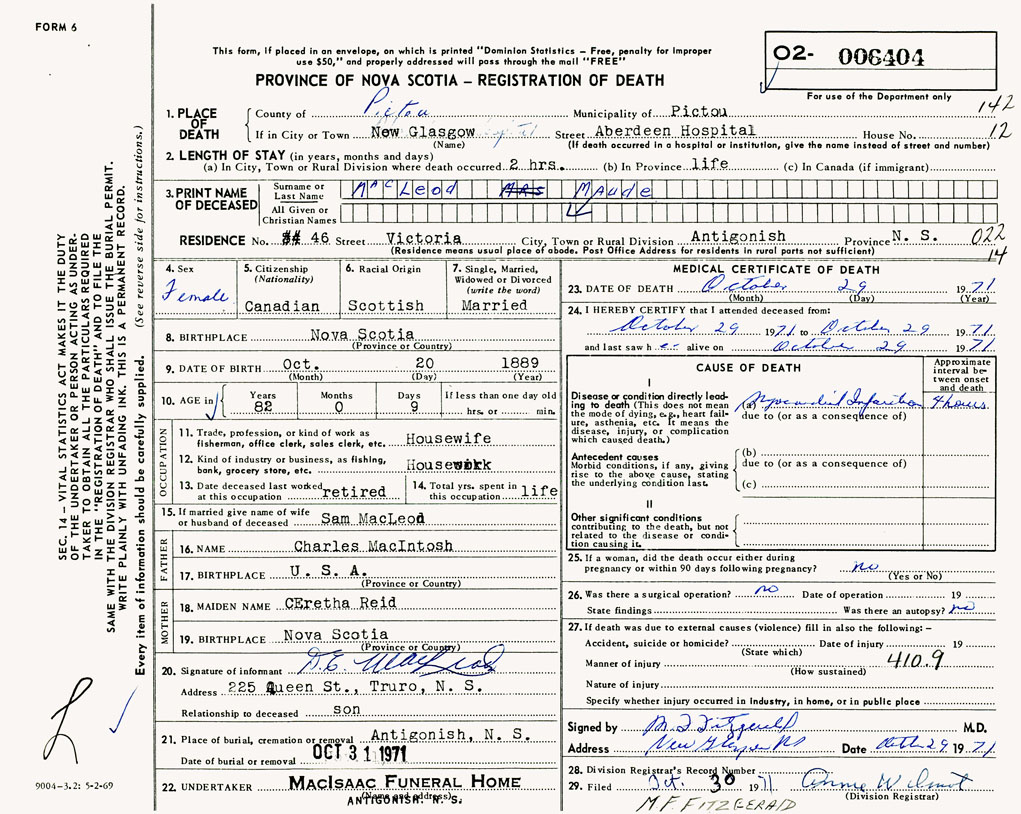 FORM 6
This form, if placed in an envelope, on which is printed "Dominion Statistics – Free, penalty for improper
use $50," and properly addressed will pass through the mail "FREE"
PROVINCE OF NOVA SCOTIA – REGISTRATION OF DEATH
O2- 006404
For use of the Department only
142
1. PLACE OF DEATH
County of Pictou Municipality of Pictou
If in City or Town New Glasgow Street Aberdeen Hospital House No. 12
(Name) (If death occurred in a hospital or institution, give the name instead of street and number)
2. LENGTH OF STAY (in years, months and days)
(a) In City, Town or Rural Division where death occurred 2 hrs. (b) In Province life (c) In Canada (if immigrant)
3. PRINT NAME OF DECEASED
Surname or Last Name MacLeod Mrs Maude
All Given or Christian Names
RESIDENCE No. 46 Street Victoria City, Town or Rural Division Antigonish Province N. S. 022
(Residence means usual place of abode. Post Office Address for residents in rural parts not sufficient) 14
4. Sex Female
5. Citizenship (Nationality) Canadian
6. Racial Origin Scottish
7. Single, Married, Widowed or Divorced (write the word) Married
8. BIRTHPLACE Nova Scotia
(Province or Country)
9. DATE OF BIRTH Oct. 20 1889
(Month) (Day) (Year)
10. AGE in Years 82 Months 0 Days 9 If less than one day old hrs. or min.
OCCUPATION
11. Trade, profession, or kind of work as fisherman, office clerk, sales clerk, etc. Housewife
12. Kind of industry or business, as fishing, bank, grocery store, etc. Housework
13. Date deceased last worked at this occupation retired
14. Total yrs. spent in this occupation life
15. If married give name of wife or husband of deceased Sam MacLeod
FATHER
16. NAME Charles MacIntosh
17. BIRTHPLACE U. S. A.
(Province or Country)
MOTHER
18. MAIDEN NAME CEretha Reid
19. BIRTHPLACE Nova Scotia
(Province or Country)
20. Signature of informant D.E. MacLeod
Address 225 Queen St., Truro, N. S.
Relationship to deceased son
21. Place of burial, cremation or removal Antigonish, N. S.
Date of burial or removal OCT 31 1971
22. UNDERTAKER MacIsaac Funeral Home
(Name and address)
ANTIGONISH, N. S.
MEDICAL CERTIFICATE OF DEATH
23. DATE OF DEATH October 29 1971
(Month) (Day) (Year)
24. I HEREBY CERTIFY that I attended deceased from:
October 29 1971 to October 29 1971
and last saw her alive on October 29 1971
CAUSE OF DEATH
Approximate interval between onset and death
I
Disease or condition directly leading to death (This does not mean the mode of dying, e.g., heart failure, asthenia, etc. It means the disease, injury, or complication which caused death.)
(a) Myocardial Infarction 4 hours
due to (or as a consequence of)
Antecedent causes
Morbid conditions, if any, giving rise to the above cause, stating the underlying condition last.
(b)
due to (or as a consequence of)
(c)
II
Other significant conditions contributing to the death, but not related to the disease or condition causing it.
25. If a woman, did the death occur either during pregnancy or within 90 days following pregnancy? no
(Yes or No)
26. Was there a surgical operation? no Date of operation 19
State findings Was there an autopsy? no
27. If death was due to external causes (violence) fill in also the following: –
Accident, suicide or homicide? Date of injury 19
(State which)
Manner of injury 410.9
(How sustained)
Nature of injury
Specify whether injury occurred in industry, in home, or in public place
Signed by M F Fitzgerald M.D.
Address New Glasgow NS Date Oct 29 1971
28. Division Registrar's Record Number
29. Filed Oct. 30 1971 Annie Wilmot
(Division Registrar)
M.F. FITZGERALD
SEC. 14 – VITAL STATISTICS ACT MAKES IT THE DUTY
OF THE UNDERTAKER OR PERSON ACTING AS UNDER-
TAKER TO OBTAIN ALL THE PARTICULARS REQUIRED
IN THE "REGISTRATION OF DEATH" AND TO FILE THE
SAME WITH THE DIVISION REGISTRAR WHO SHALL ISSUE THE BURIAL PERMIT.
WRITE PLAINLY WITH UNFADING INK. THIS IS A PERMANENT RECORD.
Every item of information should be carefully supplied. (See reverse side for instructions.)
9004-3.2: 5-2-69